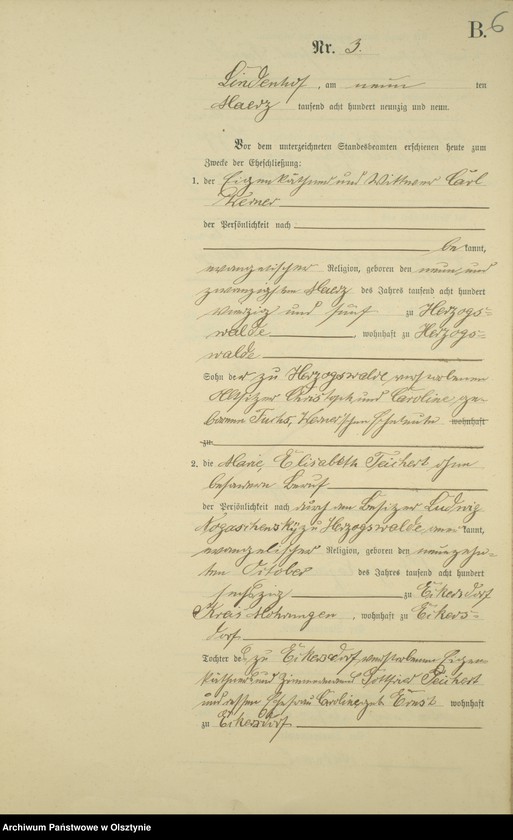 B. 6
Nr. 3.
Lindenhof, am neun ten
Maerz tausend acht hundert neunzig und neun.
Vor dem unterzeichneten Standesbeamten erschienen heute zum
Zwecke der Eheschließung:
1. der Eigenkäthner und Wittwer Carl
Werner
der Persönlichkeit nach
be kannt,
evangelischer Religion, geboren den neun und
zwanzigsten Maerz des Jahres tausend acht hundert
vierzig und fünf zu Herzogs=
walde, wohnhaft zu Herzogs=
walde
Sohn der zu Herzogswalde verstorbenen
Altsitzer Christoph und Caroline, ge=
borenen Fuchs, Werner'schen Eheleute wohnhaft
zu
2. die Marie, Elisabeth Teichert, ohne
besonderen Beruf
der Persönlichkeit nach durch den Besitzer Ludwig
zu Herzogswalde, aner kannt,
evangelischer Religion, geboren den neunzehn=
ten October des Jahres tausend acht hundert
sechszig zu Eckersdorf
Kreis Mohrungen, wohnhaft zu Eckers=
dorf
Tochter des zu Eckersdorf verstorbenen Eigen=
käthner und Zimmermann Gottfried Teichert
und dessen Ehefrau Caroline geb. Ernst wohnhaft
zu Eckersdorf
Archiwum Państwowe w Olsztynie